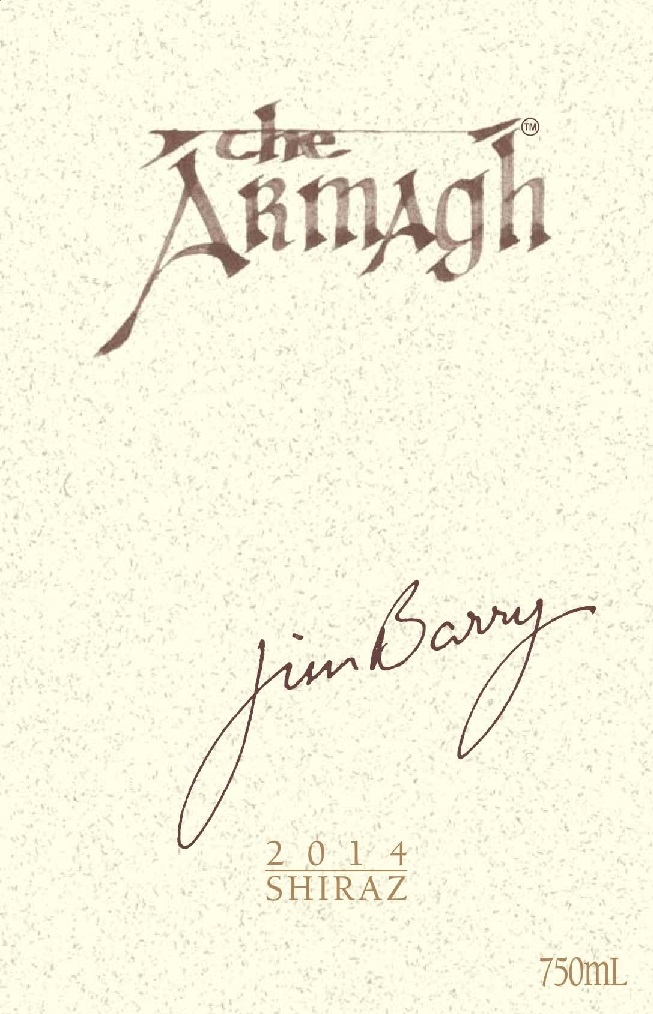 the
Armagh™
Jim Barry
2014
SHIRAZ
750mL